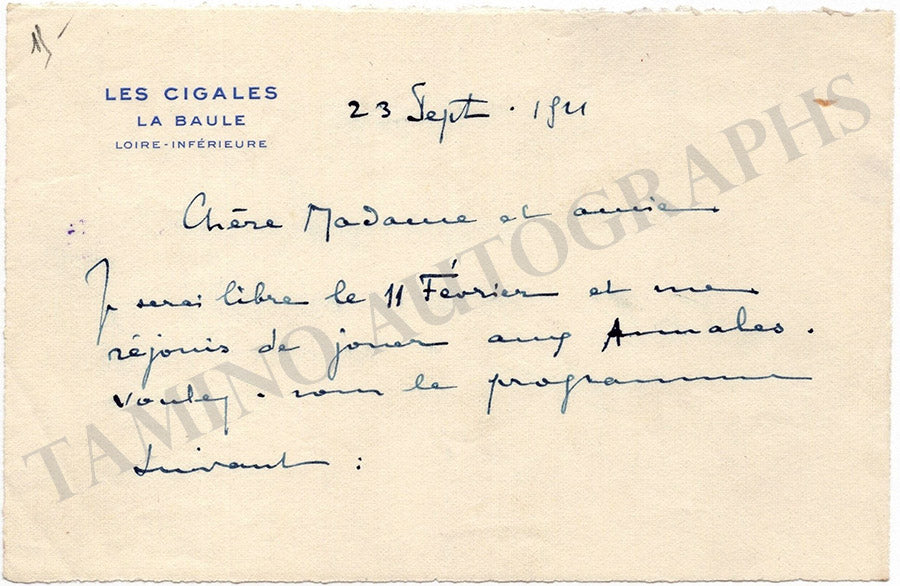 LES CIGALES
LA BAULE
LOIRE-INFÉRIEURE
23 Sept. 19
Chère Madame et amie
Je serai libre le 11 Février et me
réjouis de jouer aux Annales.
voulez-vous le programme
suivant :
TAMINO AUTOGRAPHS